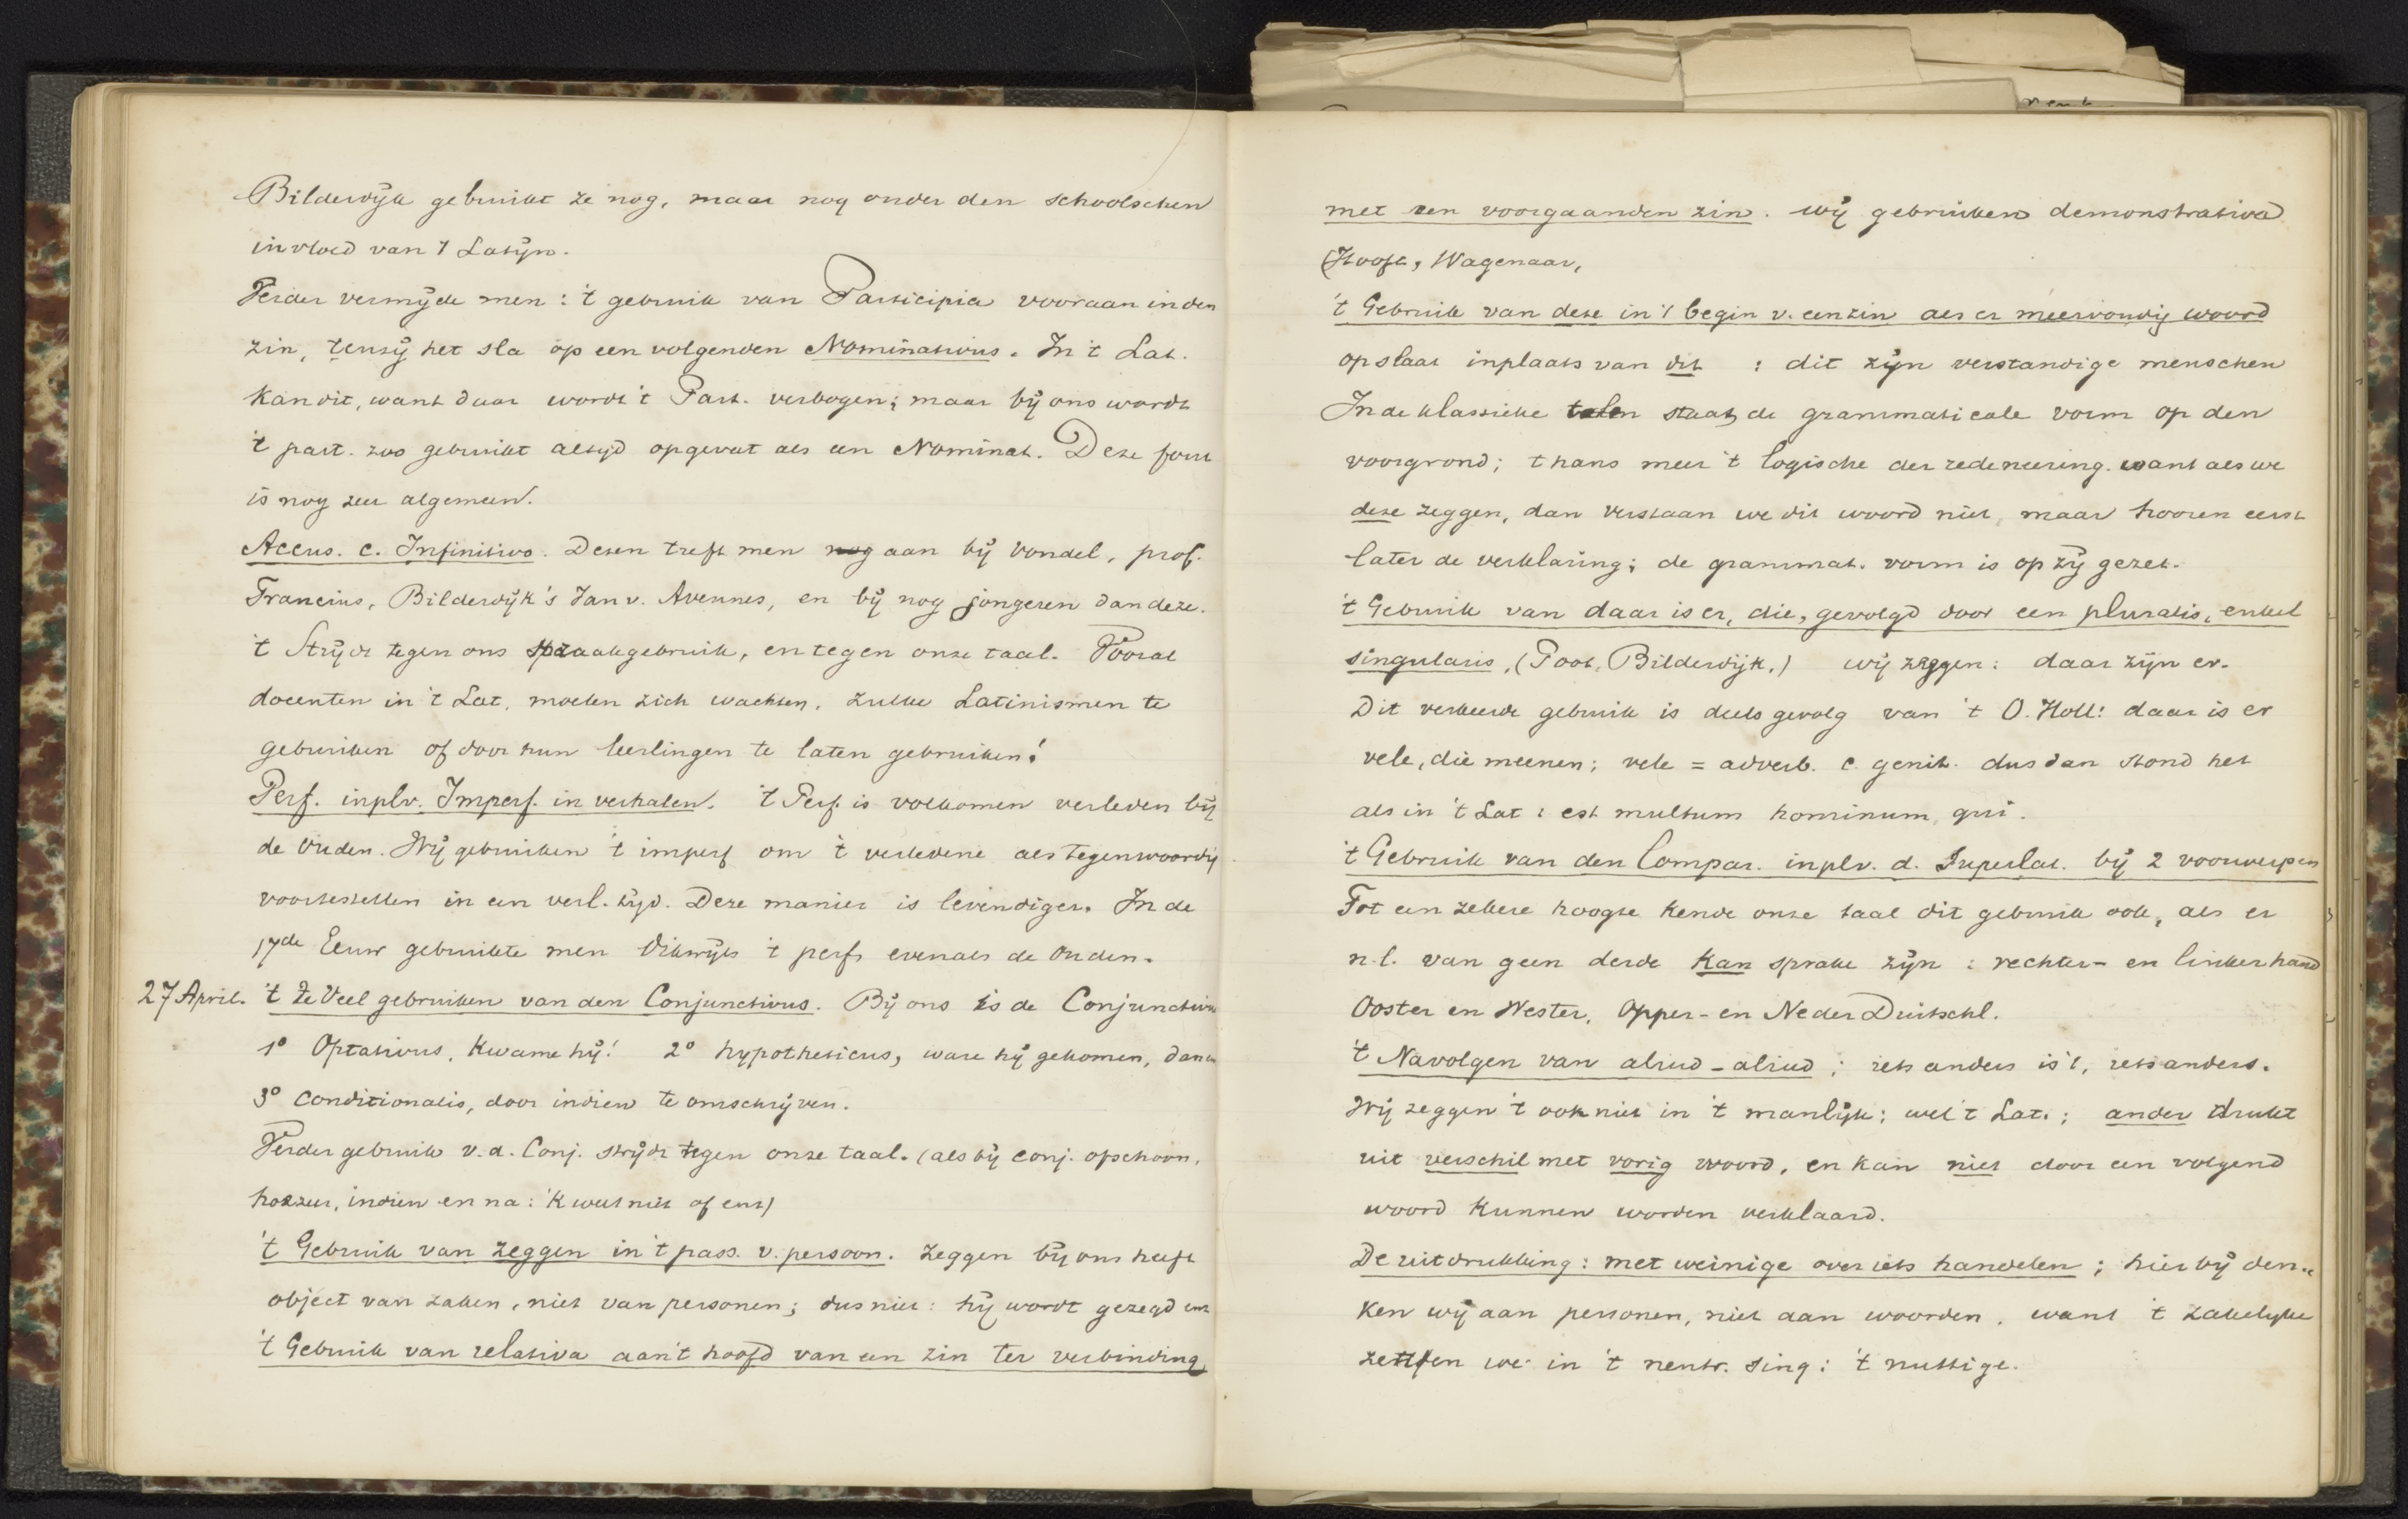 Bilderdijk gebruikt ze nog, maar nog onder den schoolschen
invloed van 't Latijn.
Verder vermijde men: 't gebruik van Participia vooraan in den
zin, tenzij het sla op een volgenden Nominativus. In 't Lat.
kan dit, want daar wordt 't Part. verbogen; maar bij ons wordt
't part. zoo gebruikt altijd opgevat als een Nominat. Deze fout
is nog zeer algemeen.
Accus. c. Infinitivo. Dezen treft men nog aan bij Vondel, prof.
Francius, Bilderdijk's Jan v. Avennes, en bij nog jongeren dan deze.
't Strijdt tegen ons spraakgebruik, en tegen onze taal. Vooral
docenten in 't Lat. moeten zich wachten, zulke Latinismen te
gebruiken of door hun leerlingen te laten gebruiken!
Perf. inplv. Imperf. in verhalen. 't Perf. is volkomen verleden bij
de Ouden. Wij gebruiken 't imperf om 't verledene als tegenwoordig
voortestellen in een verl. tijd. Deze manier is levendiger. In de
17de Eeuw gebruikte men dikwijls 't perf. evenals de Ouden.
27 April. 't Te Veel gebruiken van den Conjunctivus. Bij ons is de Conjunctivus
1° Optativus, Kwame hij! 2° hypotheticus, ware hij gekomen, dan
3° Conditionalis, door indien te omschrijven.
Verder gebruik v. d. Conj. strijdt tegen onze taal. (als bij conj. ofschoon,
hoezeer, indien en na: 'k weet niet of enz)
't Gebruik van zeggen in 't pass. v. persoon. Zeggen bij ons heeft
object van zaken, niet van personen; dus niet: hij wordt gezegd enz
't Gebruik van relativa aan 't hoofd van een zin ter verbinding
met een voorgaanden zin. Wij gebruiken demonstrativa
(Hooft, Wagenaar,
't Gebruik van deze in 't begin v. een zin als er meervoudig woord
op slaat inplaats van dit : dit zijn verstandige menschen
In de klassieke talen staat de grammaticale vorm op den
voorgrond; thans meer 't logische der redeneering. want als we
deze zeggen, dan verstaan we dit woord niet, maar hooren eerst
later de verklaring; de grammat. vorm is op zij gezet.
't Gebruik van daar is er, die, gevolgd door een pluralis, enkel
singularis, (Poot, Bilderdijk,) wij zeggen: daar zijn er.
Dit verkeerde gebruik is deels gevolg van 't O. Holl: daar is er
vele, die meenen; vele = adverb. c. genit. dus dan stond het
als in 't Lat: est multum hominum, qui.
't Gebruik van den Compar. inplv. d. Superlat. bij 2 voorwerpen
Tot een zekere hoogte kende onze taal dit gebruik ook, als er
n.l. van geen derde kan sprake zijn: rechter- en linkerhand
Ooster en Wester, Opper- en NederDuitschl.
't Navolgen van aliud - aliud; iets anders is 't, iets anders.
Wij zeggen 't ook niet in 't manlijk; wel 't Lat.; ander drukt
uit verschil met vorig woord, en kan niet door een volgend
woord kunnen worden verklaard.
De uitdrukking: met weinige over iets handelen; hierbij den-
ken wij aan personen, niet aan woorden, want 't zakelijke
zetten we in 't neutr. sing: 't nuttige.